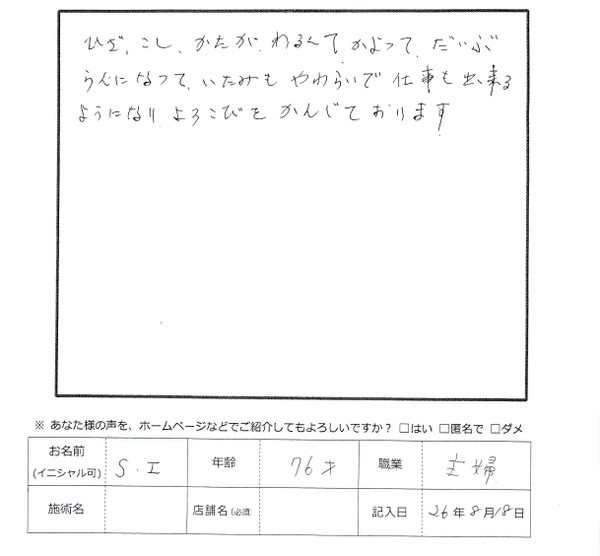 ひざ、こし、かたが、わるくて、かよって、だいぶ
らくになって、いたみも やわらいで 仕事も出来る
ようになり よろこびを かんじて おります
※ あなた様の声を、ホームページなどでご紹介してもよろしいですか？ □はい □匿名で □ダメ
お名前
(イニシャル可) S・I 年齢 76才 職業 主婦
施術名 店舗名(必須) 記入日 26年8月18日